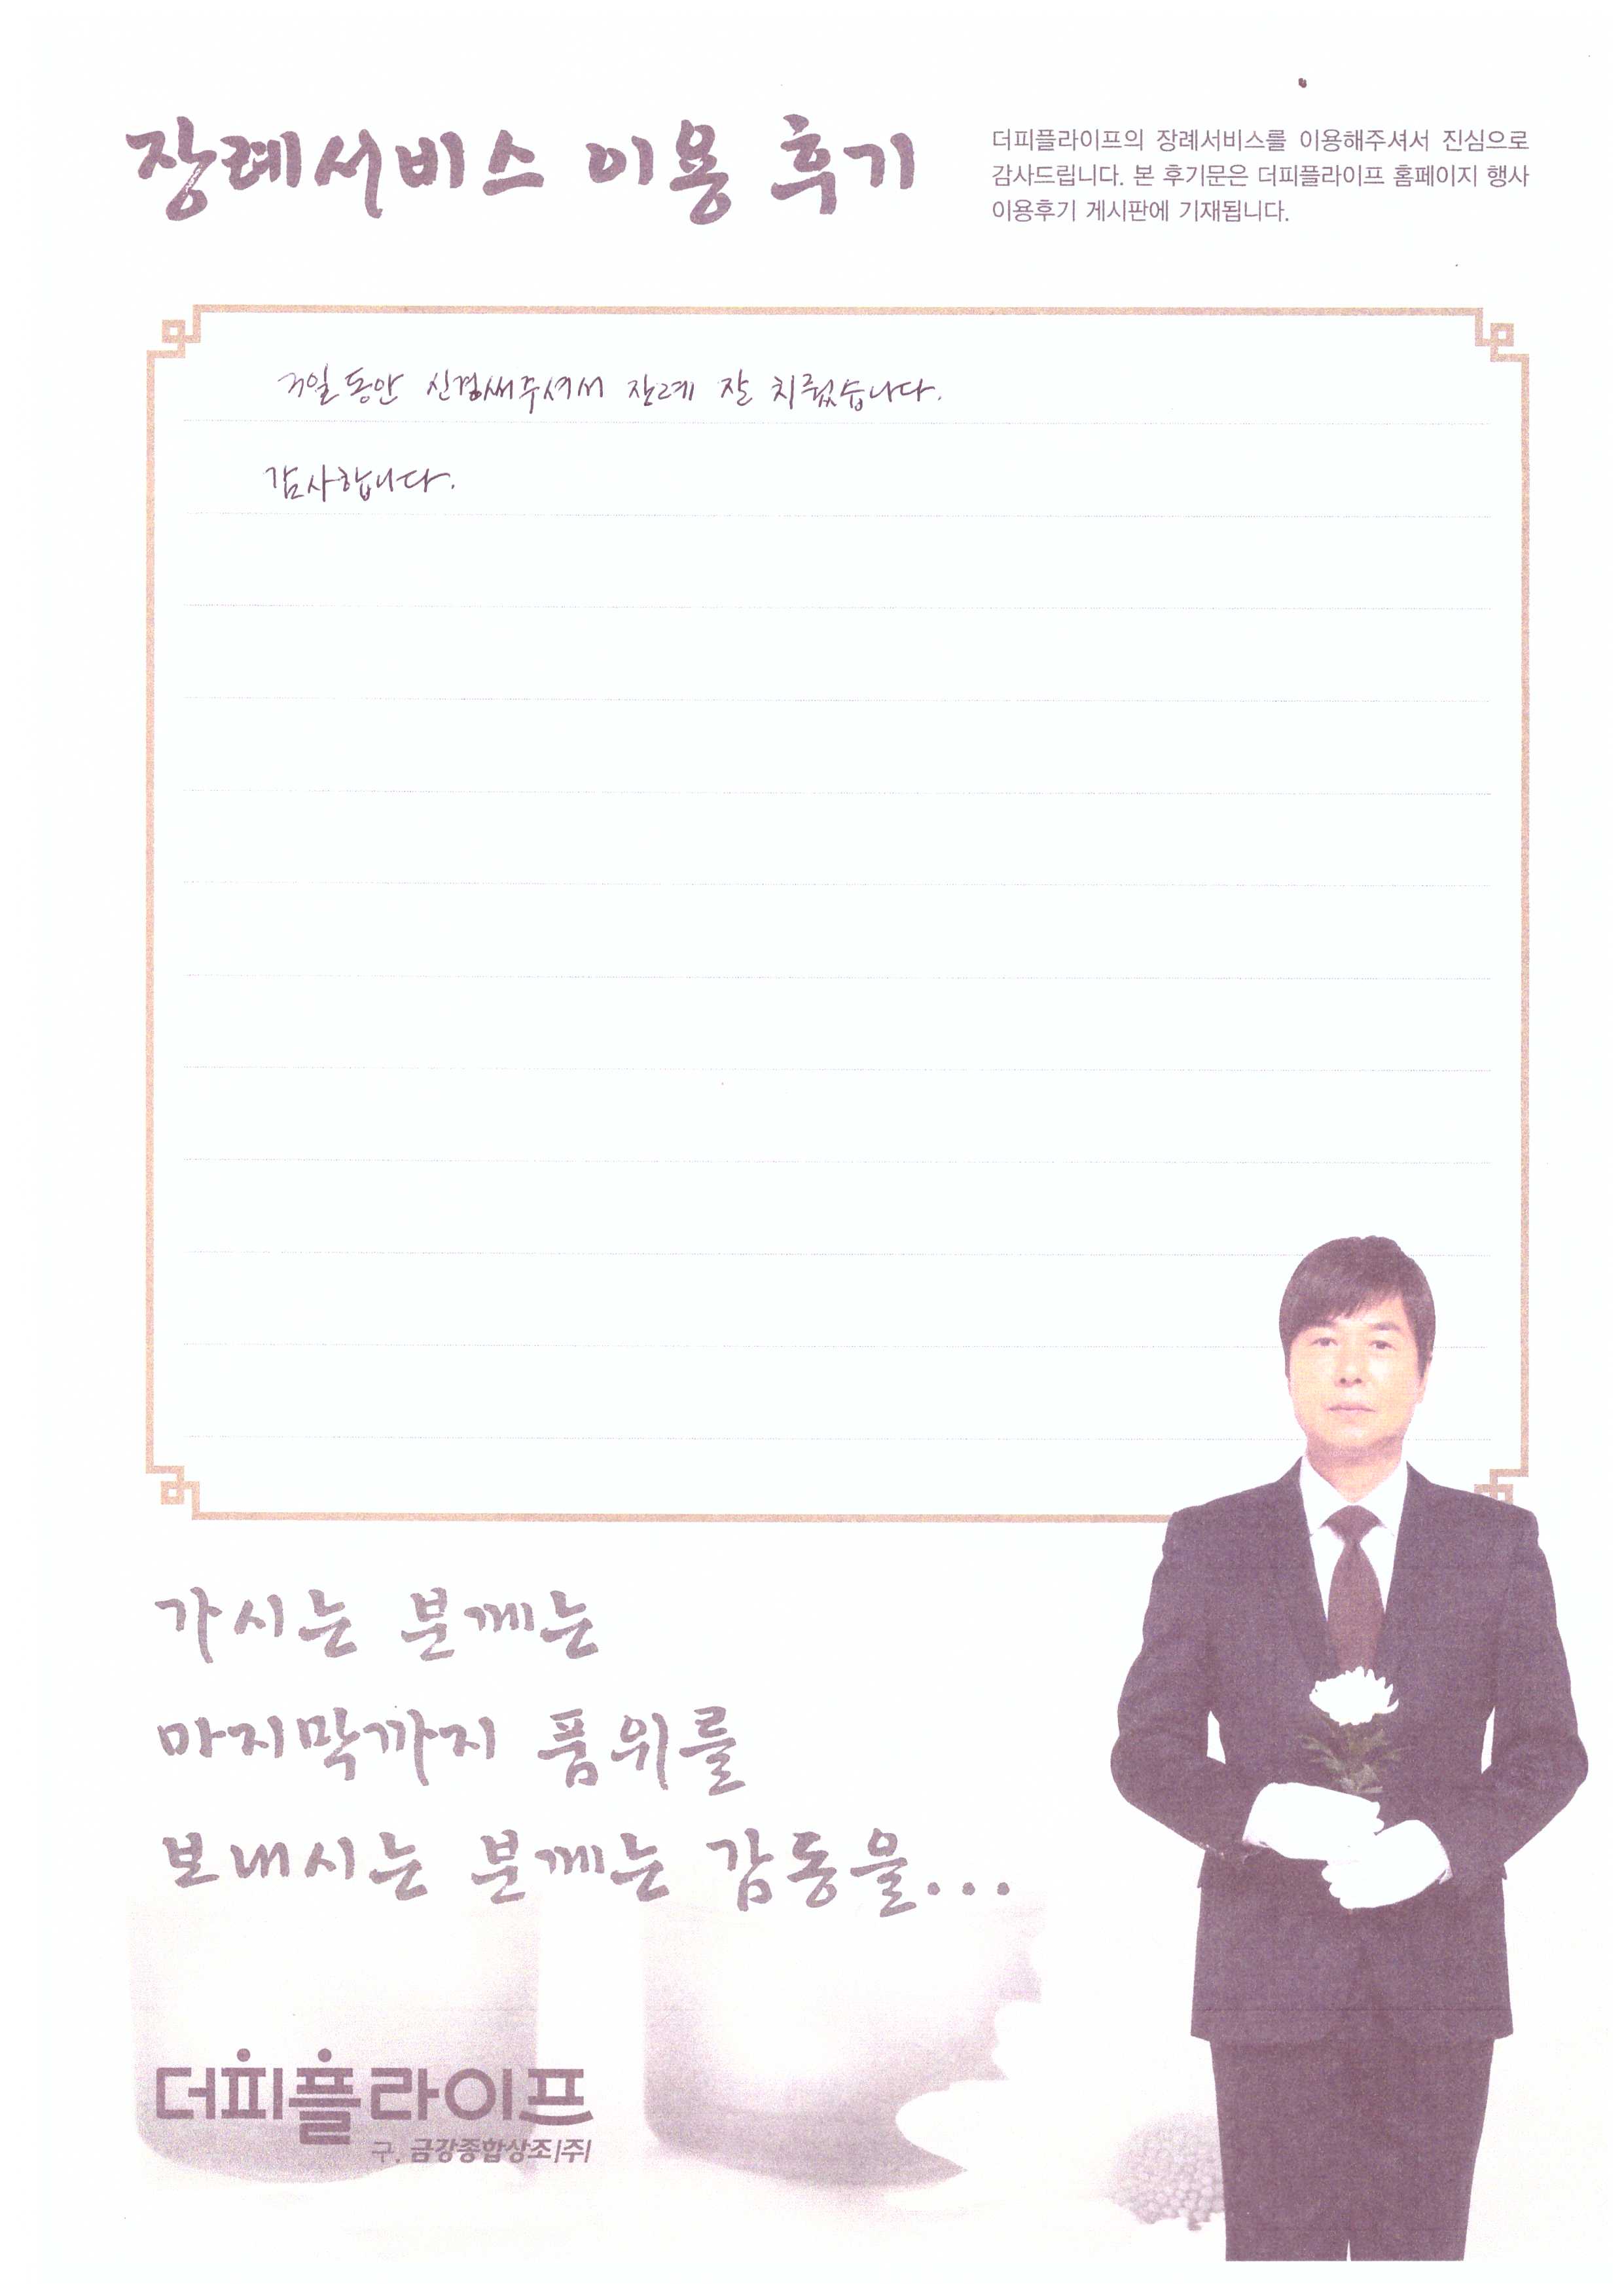 장례서비스 이용 후기
더피플라이프의 장례서비스를 이용해주셔서 진심으로
감사드립니다. 본 후기문은 더피플라이프 홈페이지 행사
이용후기 게시판에 기재됩니다.
3일동안 신경써주셔서 장례 잘 치뤘습니다.
감사합니다.
가시는 분께는
마지막까지 품위를
보내시는 분께는 감동을...
더피플라이프
구. 금강종합상조|주|